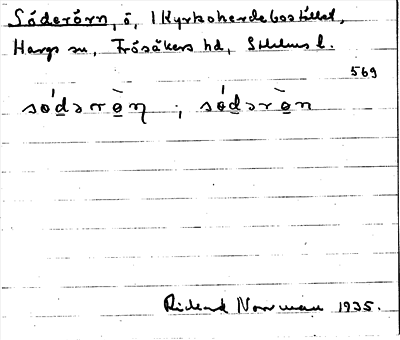 Söderörn, ö, 1 Kyrkoherdebostället,
Hargs sn, Frösåkers hd, Sthlms l.
569
sódərὸn ; sódərὸn
Rickard Norrman 1935.